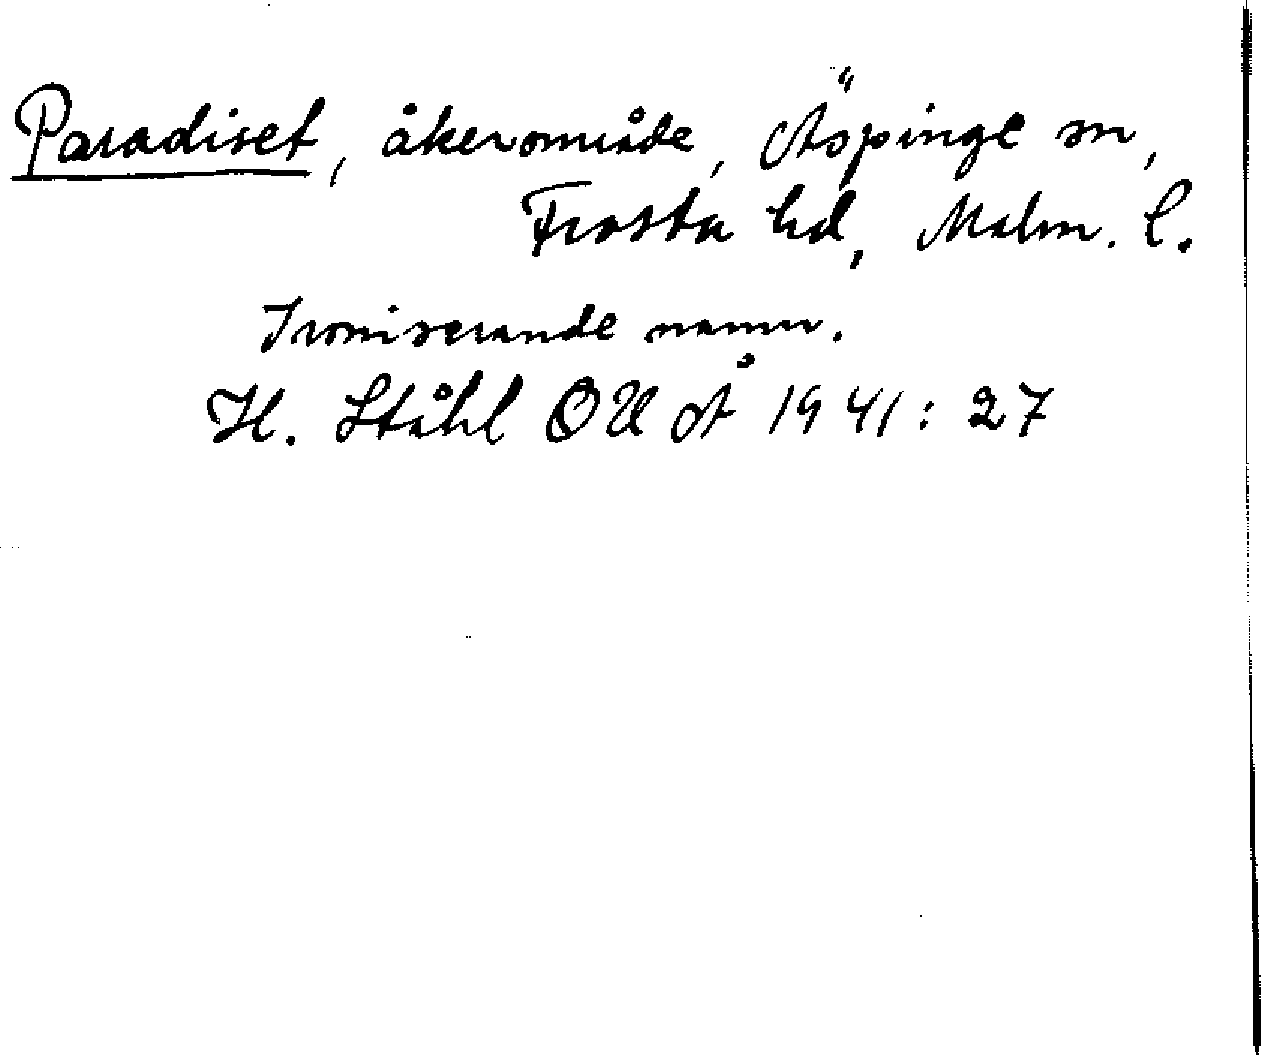 Paradiset, åkerområde, Äspinge sn,
Frosta hd, Malm. l.
Ironiserande namn.
H. Ståhl OUÅ 1941: 27